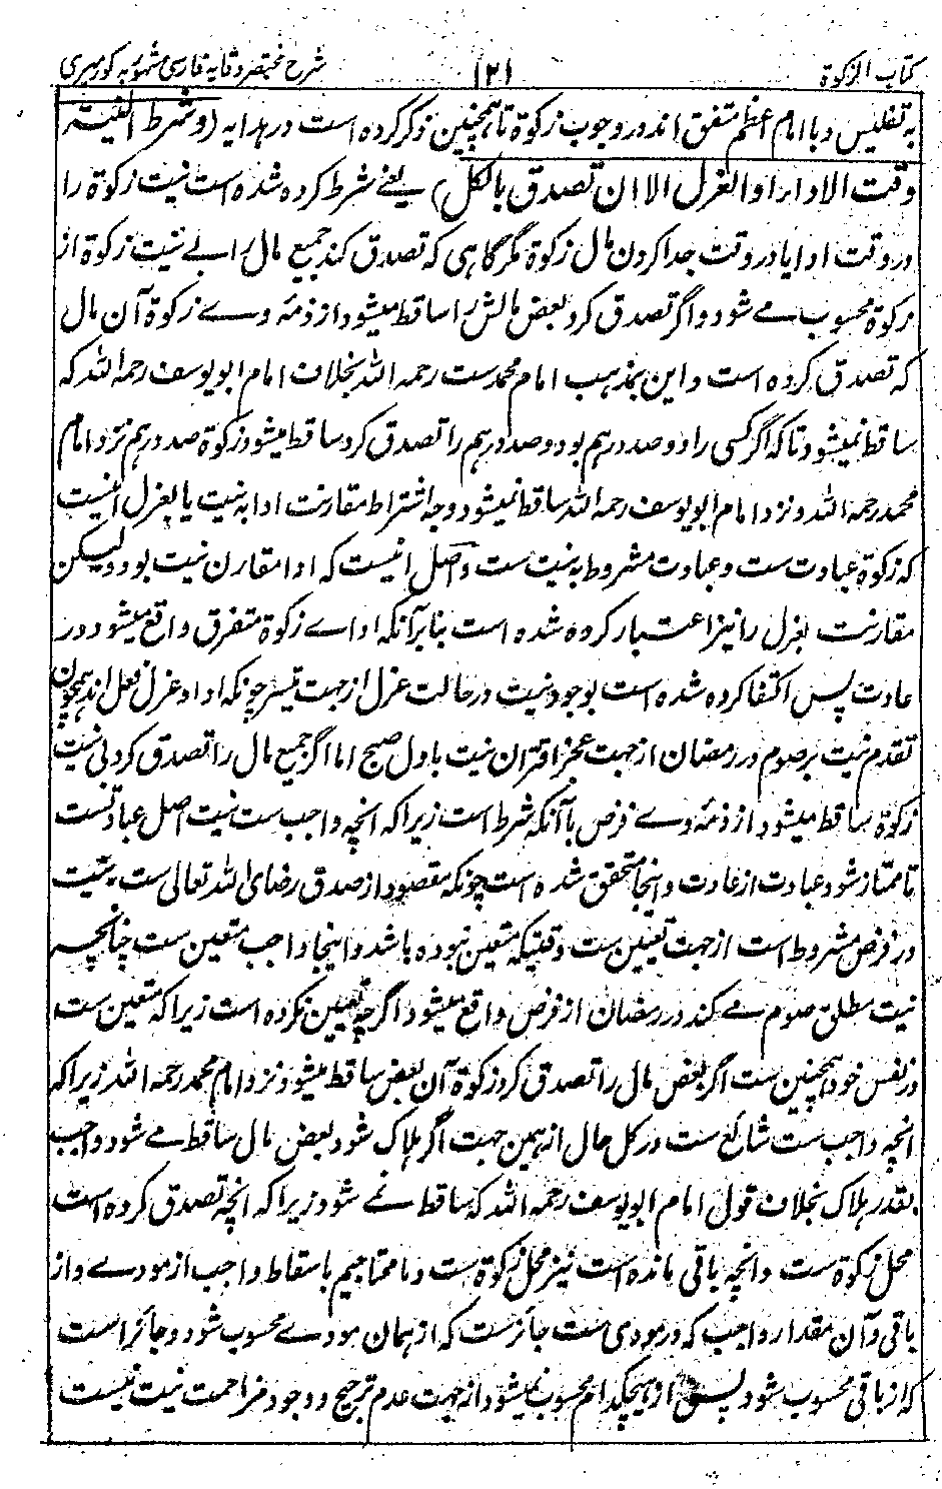 کتاب الزکوة
۱۲۱
شرح مختصر وقایه فارسی مشهور به کور میری
به تفلیس و با امام اعظم متفق اند در وجوب زکوة تا همچنین ذکر کرده است در هدایه (وشرط النیة
وقت الاداء او العزل الا ان تصدق بالکل) یعنے شرط کرده شده است نیت زکوة را
در وقت ادا یا در وقت جدا کردن مال زکوة مگر گاہی که تصدق کند جمیع مال را بے نیت زکوة از
زکوة محسوب مے شود و اگر تصدق کرد بعض مالش را ساقط میشود از ذمۂ وے زکوة آن مال
که تصدق کرده است و این بمذہب امام محمدست رحمه الله بخلاف امام ابو یوسف رحمه الله که
ساقط نمیشود تا که اگر کسی را دو صد درہم بود و صد درہم را تصدق کرد ساقط میشود زکوة صد درہم نزد امام
محمد رحمه الله و نزد امام ابو یوسف رحمه الله ساقط نمیشود وجه اشتراط مقارنت ادا به نیت یا بعزل اینست
که زکوة عبادت ست و عبادت مشروط به نیت ست و اصل اینست که ادا مقارن نیت بود ولیکن
مقارنت بعزل را نیز اعتبار کرده شده است بنا بر آنکه اداے زکوة متفرق واقع میشود در
عادت پس اکتفا کرده شده است بوجود نیت در حالت عزل از جهت تیسر چونکه ادا و عزل فعل اند همچون
تقدم نیت بر صوم در رمضان از جهت عجز اقتران نیت باول صبح اما اگر جمیع مال را تصدق کرد بی نیت
زکوة ساقط میشود از ذمۂ وے فرض با آنکه شرط است زیرا که انچه واجب ست نیت اصل عبادتست
تا ممتاز شود عبادت از عادت و اینجا متحقق شده است چونکه مقصود از صدق رضای الله تعالی ست نیت
در فرض مشروط است از جهت تعیین ست وقتیکه متعین نبوده باشد و اینجا واجب متعین ست چنانچه
نیت مطلق صوم مے کند در رمضان از فرض واقع میشود اگر چه تعیین نکرده است زیرا که متعین ست
در نفس خود همچنین ست اگر بعض مال را تصدق کرد زکوة آن بعض ساقط میشود نزد امام محمد رحمه الله زیرا که
انچه واجب ست شائع ست در کل مال از همین جهت اگر ہلاک شود بعض مال ساقط مے شود واجب
بقدر ہلاک بخلاف قول امام ابو یوسف رحمه الله که ساقط نمے شود زیرا که انچه تصدق کرده است
محل زکوة ست و انچه باقی مانده است نیز محل زکوة ست و ما محتاجیم باسقاط واجب از مودے و از
باقی و آن مقدار واجب که در مودی ست جائزست که از ہمان مودے محسوب شود و جائز است
که از باقی محسوب شود پس از ہیچکدام محسوب نمیشود از جهت عدم ترجیح و وجود مزاحمت نیت نیست